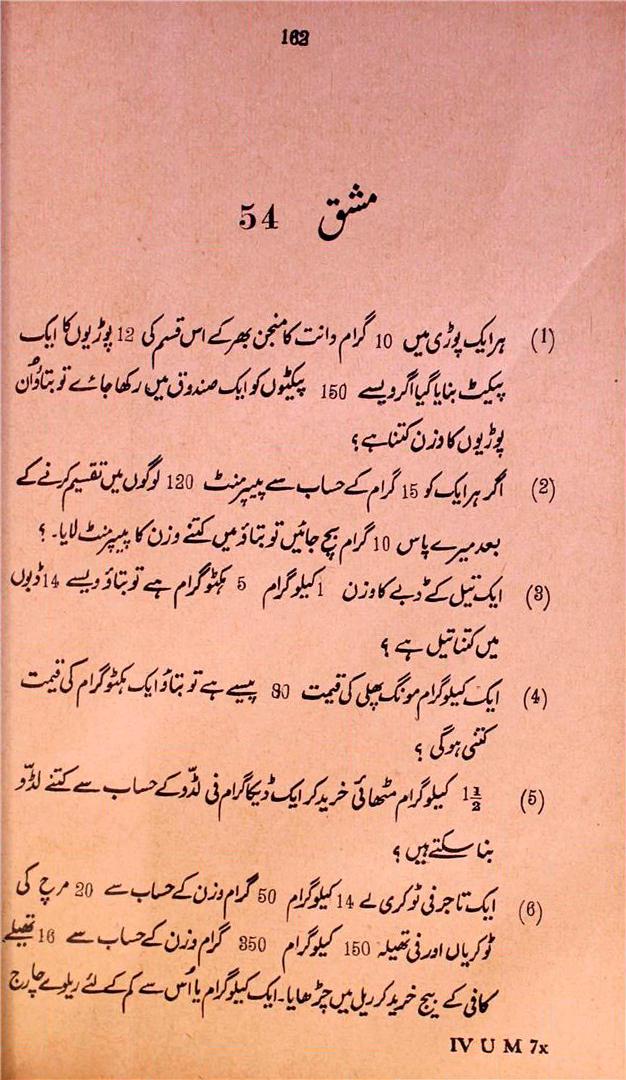 162
مشق 54
(1) ہر ایک پوڑی میں 10 گرام دانت کا منجن بھر کے اس قسم کی 12 پوڑیوں کا ایک
پیکٹ بنایا گیا اگر ویسے 150 پیکٹوں کو ایک صندوق میں رکھا جائے تو بتاؤ اُن
پوڑیوں کا وزن کتنا ہے ؟
(2) اگر ہر ایک کو 15 گرام کے حساب سے پیپرمنٹ 120 لوگوں میں تقسیم کرنے کے
بعد میرے پاس 10 گرام بچ جائیں تو بتاؤ میں کتنے وزن کا پیپرمنٹ لایا۔ ؟
(3) ایک تیل کے ڈبے کا وزن 1 کیلوگرام 5 ہکٹوگرام ہے تو بتاؤ ویسے 14 ڈبوں
میں کتنا تیل ہے ؟
(4) ایک کیلوگرام مونگ پھلی کی قیمت 80 پیسے ہے تو بتاؤ ایک ہکٹوگرام کی قیمت
کتنی ہوگی ؟
(5) 1½ کیلوگرام مٹھائی خرید کر ایک ڈیکاگرام فی لڈّو کے حساب سے کتنے لڈّو
بنا سکتے ہیں ؟
(6) ایک تاجر فی ٹوکری لے 14 کیلوگرام 50 گرام وزن کے حساب سے 20 مرچ کی
ٹوکریاں اور فی تھیلہ 150 کیلوگرام 350 گرام وزن کے حساب سے 16 تھیلے
کافی کے بیج خرید کر ریل میں چڑھایا۔ ایک کیلوگرام یا اُس سے کم کے لئے ریلوے چارج
IV U M 7x